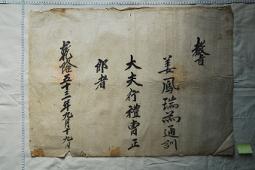 敎旨
姜鳳瑞爲通訓
大夫行禮曹正
郎者
乾隆五十三年九月十九日